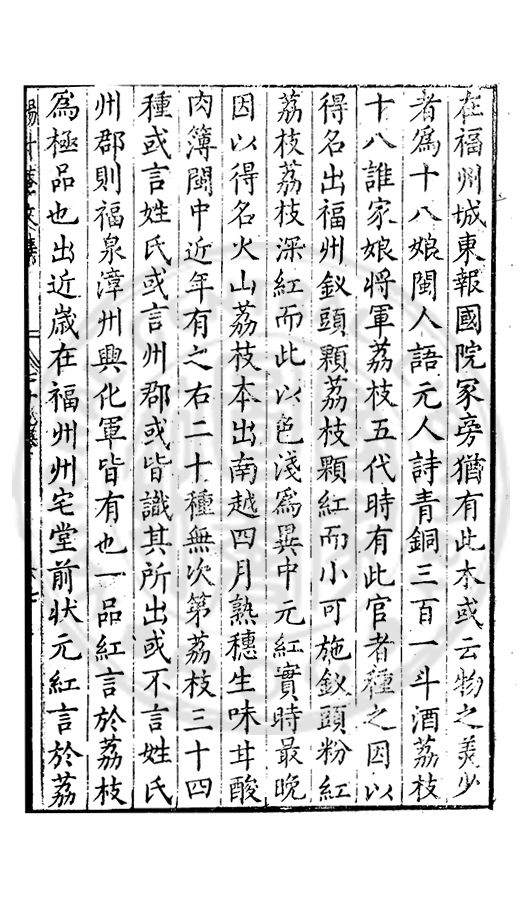 在福州城東報國院冢旁猶有此木或云物之美少
者爲十八娘閩人語元人詩青銅三百一斗酒荔枝
十八誰家娘將軍荔枝五代時有此官者種之因以
得名出福州釵頭顆荔枝顆紅而小可施釵頭粉紅
荔枝荔枝深紅而此以色淺爲異中元紅實時最晚
因以得名火山荔枝本出南越四月熟穗生味甘酸
肉簿閩中近年有之右二十種無次第荔枝三十四
種或言姓氏或言州郡或皆識其所出或不言姓氏
州郡則福泉漳州興化軍皆有也一品紅言於荔枝
爲極品也出近歲在福州州宅堂前狀元紅言於荔